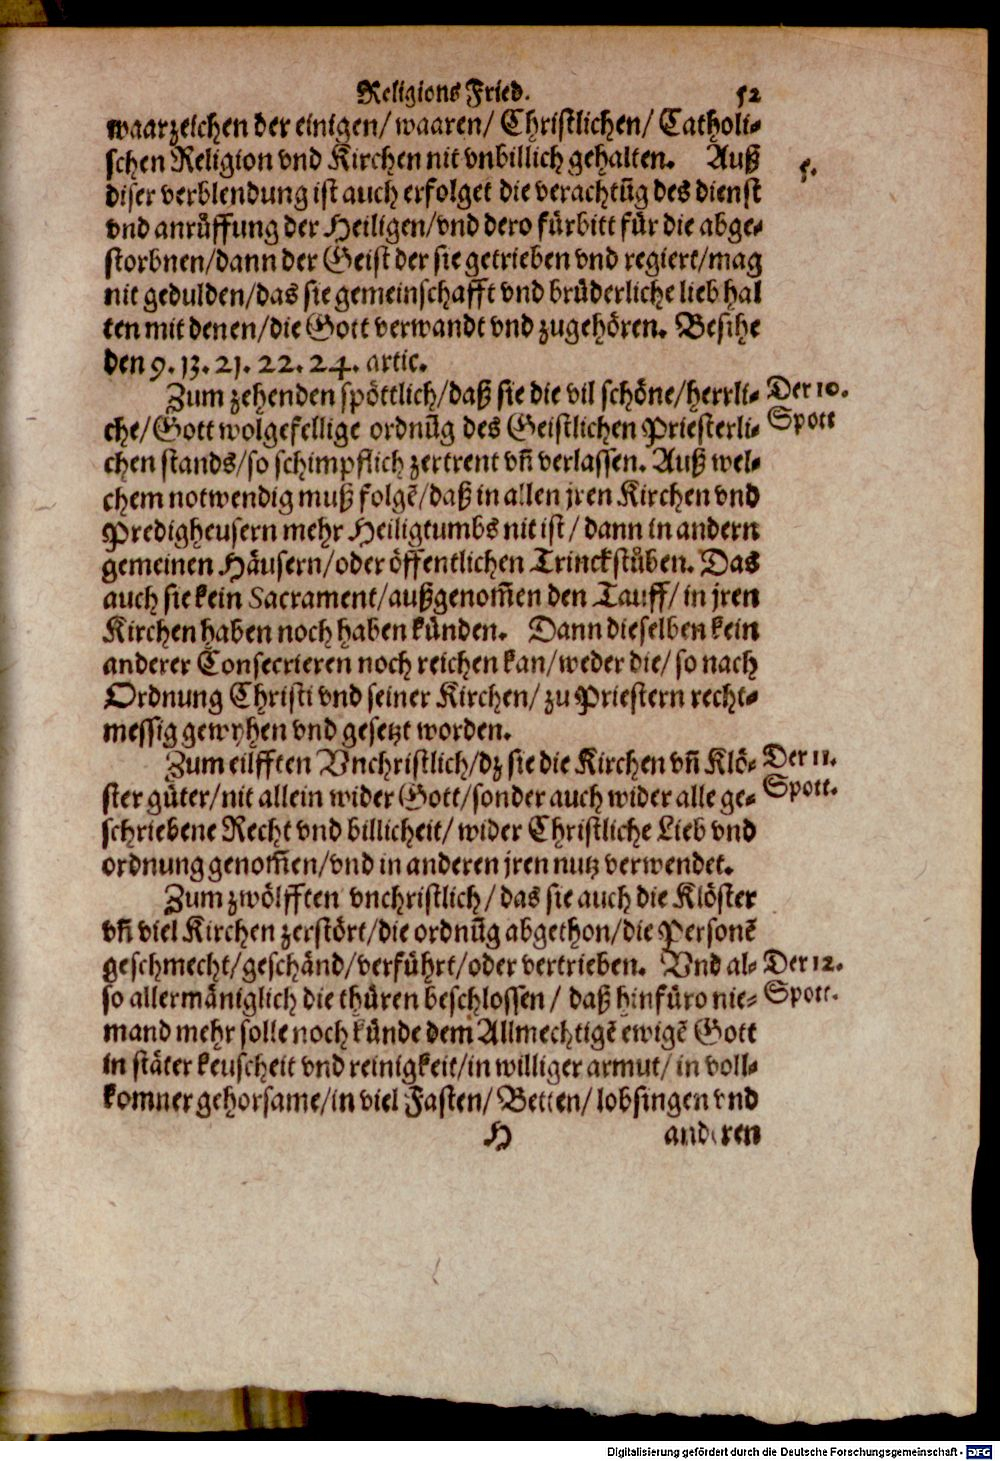 Religions Fried. 52
waarzeichen der einigen/ waaren/ Christlichen/ Catholi-
schen Religion vnd Kirchen nit vnbillich gehalten. Auß
diser verblendung ist auch erfolget die verachtũg des dienst
vnd anrůffung der Heiligen/vnd dero fürbitt für die abge-
storbnen/dann der Geist der sie getrieben vnd regiert/mag
nit gedulden/das sie gemeinschafft vnd brüderliche lieb hal
ten mit denen/die Gott verwandt vnd zugehören. Besihe
den 9. 13. 21. 22. 24. artic.
5.
Zum zehenden spöttlich/daß sie die vil schöne/herrli-
che/Gott wolgefellige ordnũg des Geistlichen Priesterli-
chen stands/so schimpflich zertrent vñ verlassen. Auß wel-
chem notwendig muß folgẽ/daß in allen jren Kirchen vnd
Predigheusern mehr Heiligtumbs nit ist/ dann in andern
gemeinen Häusern/oder öffentlichen Trinckstůben. Das
auch sie kein Sacrament/außgenom̃en den Tauff/ in jren
Kirchen haben noch haben künden. Dann dieselben kein
anderer Consecrieren noch reichen kan/weder die/ so nach
Ordnung Christi vnd seiner Kirchen/ zu Priestern recht-
messig gewyhen vnd gesetzt worden.
Der 10.
Spott
Zum eilfften Vnchristlich/dz sie die Kirchen vñ Klö-
ster gůter/nit allein wider Gott/sonder auch wider alle ge-
schriebene Recht vnd billicheit/ wider Christliche Lieb vnd
ordnung genom̃en/vnd in anderen jren nutz verwendet.
Der 11.
Spott.
Zum zwölfften vnchristlich/ das sie auch die Klöster
vñ viel Kirchen zerstört/die ordnũg abgethon/die Personẽ
geschmecht/geschänd/verführt/oder vertrieben. Vnd al-
so allermäniglich die thüren beschlossen/ daß hinfüro nie-
mand mehr solle noch künde dem Allmechtigẽ ewigẽ Gott
in stäter keuscheit vnd reinigkeit/in williger armut/ in voll-
komner gehorsame/in viel Fasten/ Betten/ lobsingen vnd
Der 12.
Spott.
H anderen
Digitalisierung gefördert durch die Deutsche Forschungsgemeinschaft - DFG